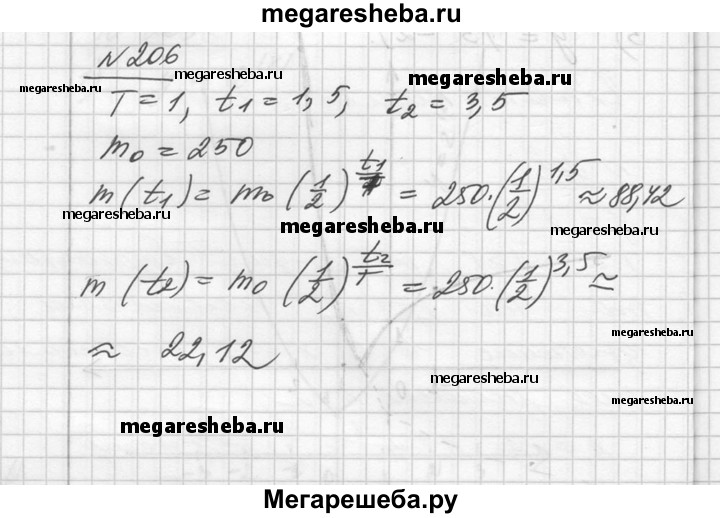 megaresheba.ru
N 206
megaresheba.ru
megaresheba.ru
megaresheba.ru
T = 1, t1 = 1,5, t2 = 3,5
m0 = 250
m(t1) = m0 (1/2)^(t1/T) = 250·(1/2)^1,5 ≈ 88,42
megaresheba.ru
megaresheba.ru
megaresheba.ru
m(t2) = m0 (1/2)^(t2/T) = 250·(1/2)^3,5 ≈
megaresheba.ru
≈ 22,12
megaresheba.ru
megaresheba.ru
Мегарешеба.ру